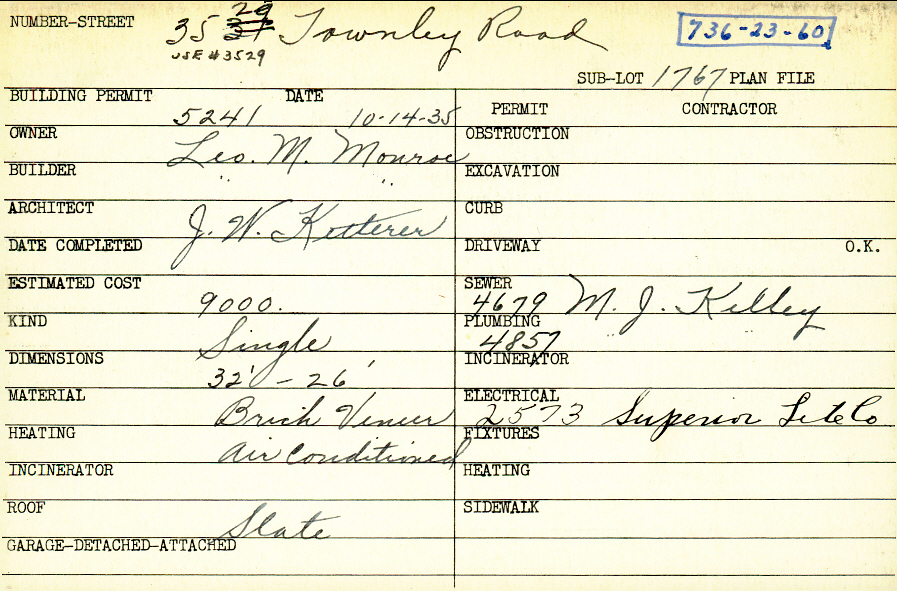 NUMBER-STREET 35 29 Townley Road 736-23-60
USE #3529
SUB-LOT 1767 PLAN FILE
BUILDING PERMIT DATE PERMIT CONTRACTOR
5241 10-14-35
OWNER Leo. M. Monroe OBSTRUCTION
BUILDER " " EXCAVATION
ARCHITECT J. W. Ketterer CURB
DATE COMPLETED DRIVEWAY O.K.
ESTIMATED COST 9000. SEWER 4679 M. J. Kelley
KIND Single PLUMBING 4857 " "
DIMENSIONS 32' - 26' INCINERATOR
MATERIAL Brick Veneer ELECTRICAL 2573 Superior Co
HEATING Air Conditioned FIXTURES
INCINERATOR HEATING
ROOF Slate SIDEWALK
GARAGE-DETACHED-ATTACHED